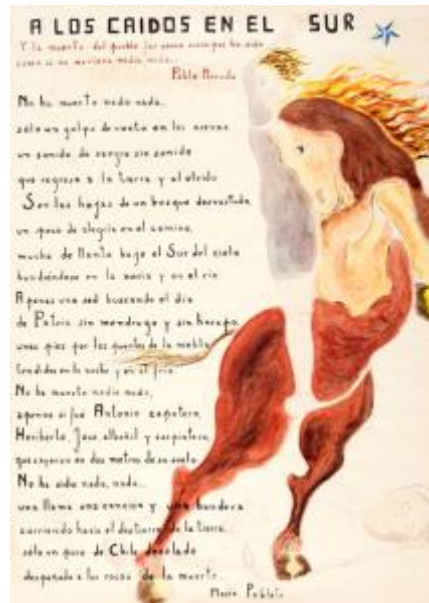 A LOS CAIDOS EN EL SUR
Y la muerte del pueblo fue como siempre ha sido
como si no muriera nadie, nada...
Pablo Neruda
No ha muerto nada nada...
solo un golpe de viento en las
un sonido de sangre sin sonido
que regresa a la tierra y al olvido
Son las hojas de un bosque devastado
un poco de alegria en el camino,
mucho de llanto bajo el Sur del cielo
hundiendose en la y en el rio
Apenas una sed buscando el dia
de Patria sin mendrugo y sin harapo,
unos pies por los puentes de la niebla
tendidos en la noche y en el frio.
No ha muerto nadie nada,
apenas si fué Antonio zapatero,
Heriberto, Jose, albañil y carpintero,
que cayeron en dos metros de su suelo
No ha sido nada, nada...
una llama una cancion y una bandera
corriendo hacia el destierro de la tierra...
solo un poco de Chile desolado
despeñado a las rocas de la muerte...